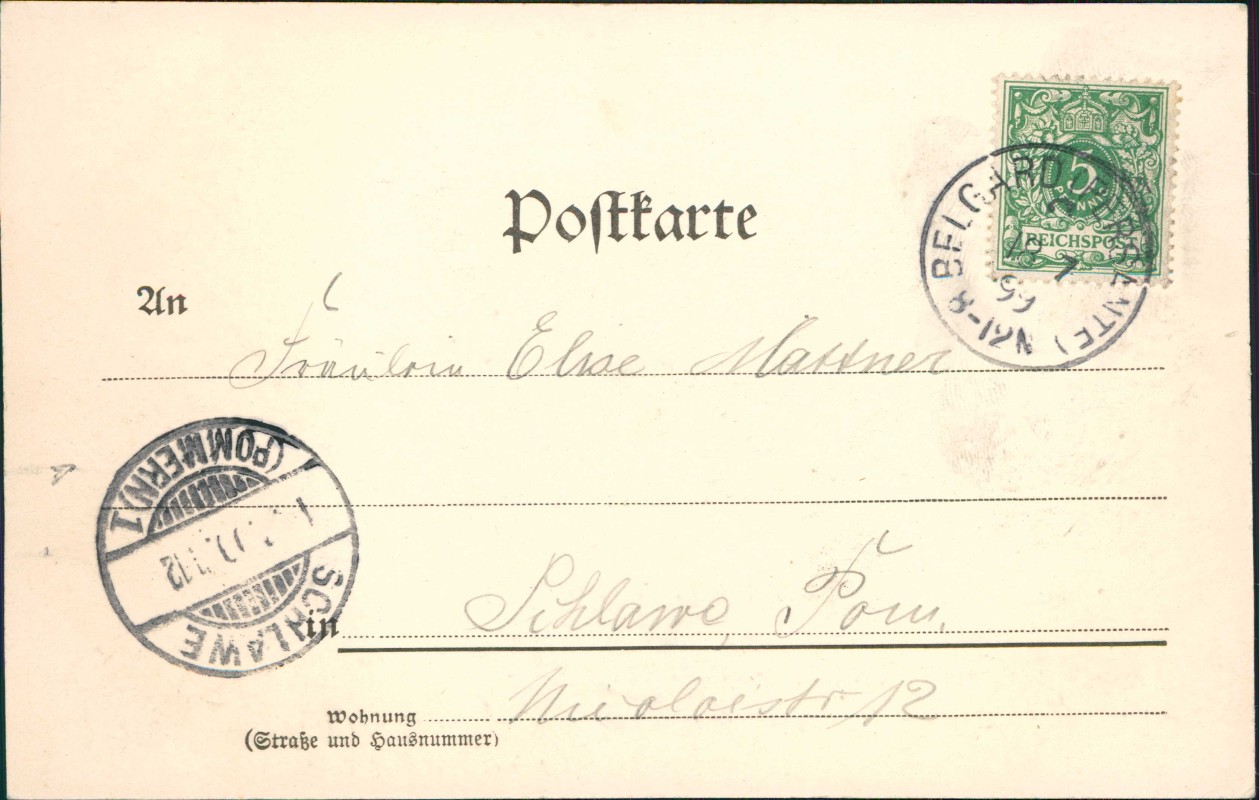 5
PFENNIG
REICHSPOST
BELGARD (PERSANTE)
18 7
99
8-12N
Postkarte
An
Fräulein Elise Mattner
(POMMERN) 1
SCHLAWE
in Schlawe, Pom.
Wohnung Nicolaistr. 12
(Straße und Hausnummer)